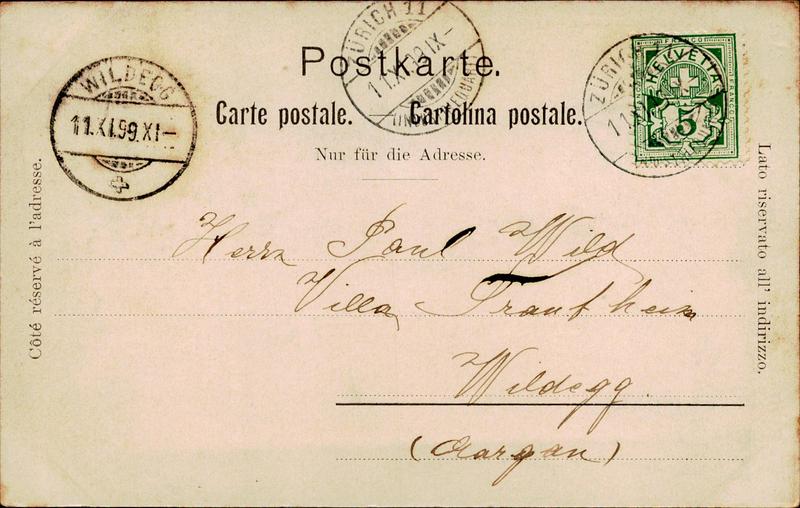 ZÜRICH 11
11.XI.99.IX–
Postkarte.
Carte postale. Cartolina postale.
Nur für die Adresse.
WILDEGG
11.XI.99.XI–
ZÜRICH
FRANCO
HELVETIA
5
Côté réservé à l'adresse.
Lato riservato all' indirizzo.
Herrn Paul Wild
Villa Trautheim
Wildegg.
(Aargau)